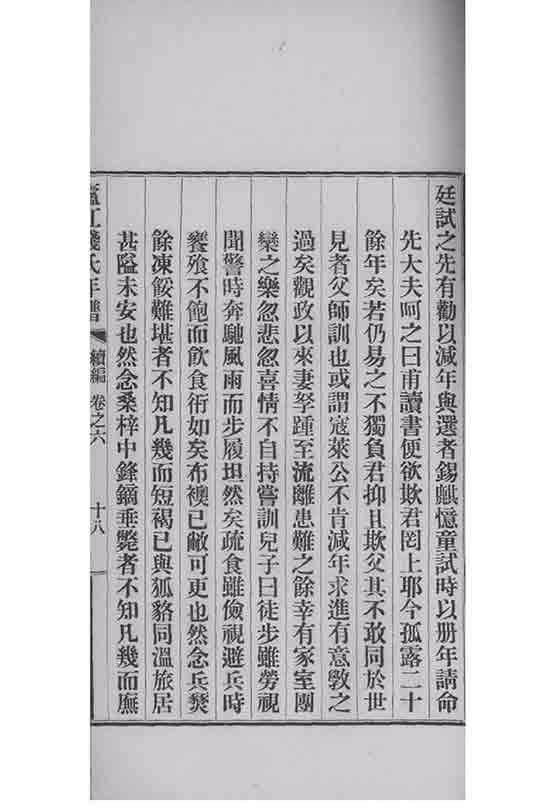 廷試之先有勸以減年與選者錫麒憶童試時以册年請命
先大夫呵之曰甫讀書便欲欺君罔上耶今孤露二十
餘年矣若仍易之不獨負君抑且欺父其不敢同於世
見者父師訓也或謂寇萊公不肯減年求進有意斆之
過矣觀政以來妻孥踵至流離患難之餘幸有家室團
欒之樂忽悲忽喜情不自持嘗訓兒子曰徒步雖勞視
聞警時奔馳風雨而步履坦然矣疏食雖儉視避兵時
饔飧不飽而飲食衎如矣布襖已敝可更也然念兵燹
餘凍餒難堪者不知凡幾而短褐已與狐貉同溫旅居
甚隘未安也然念桑梓中鋒鏑垂斃者不知凡幾而廡
廬江錢氏年譜 續編 卷之六 十八